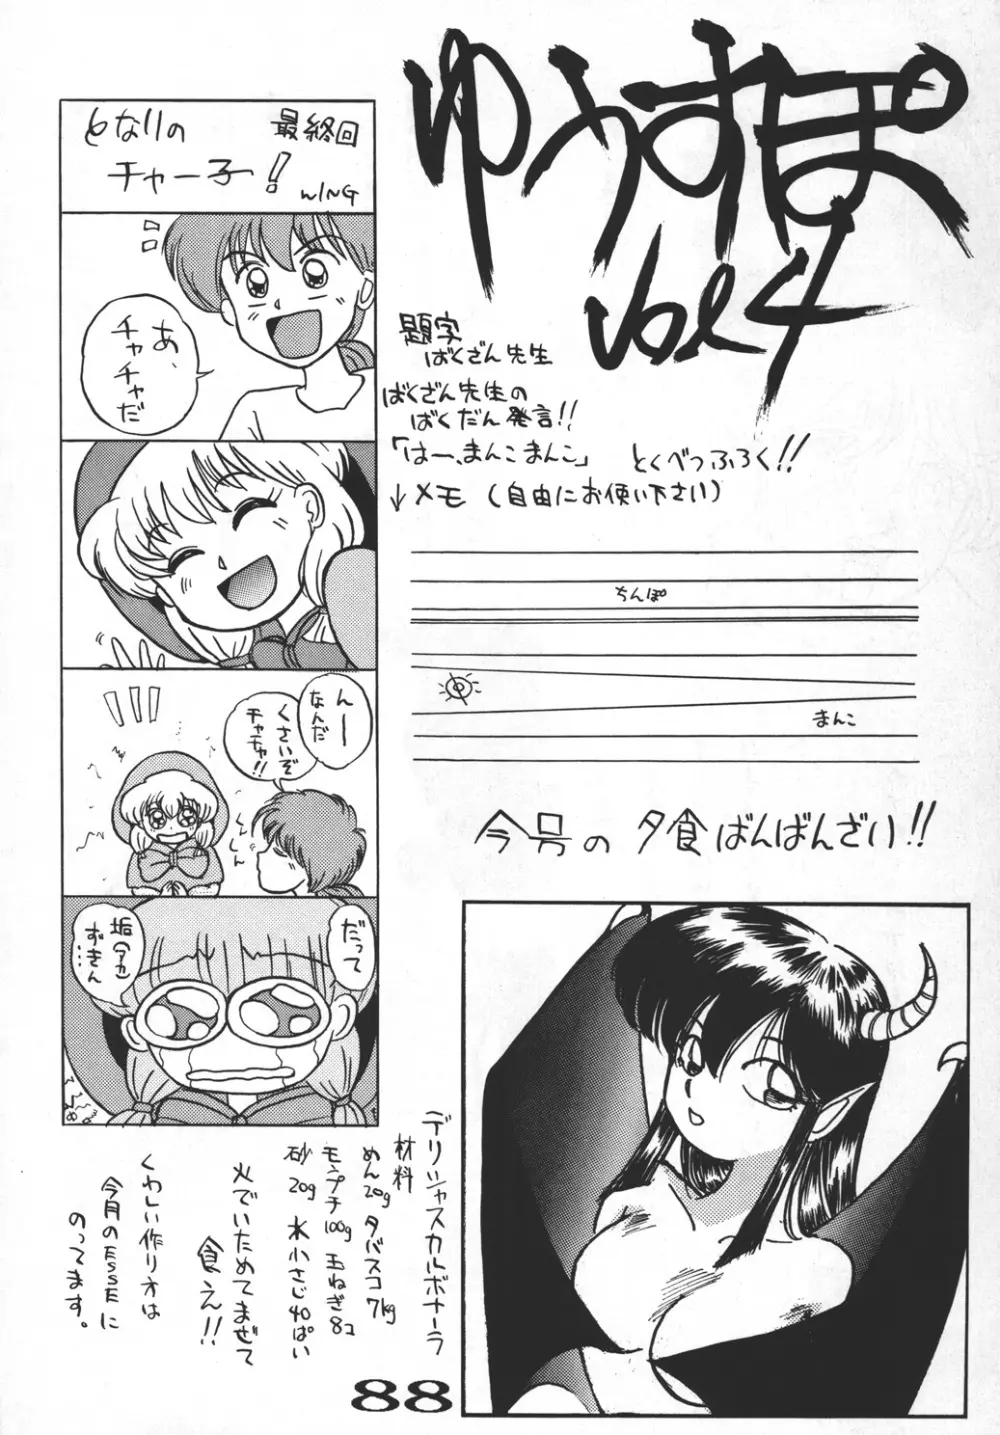 ゆうすぽ
Vol 4
となりの
チャー子!
最終回
WING
あ、
チャチャだ
んー
なんだ
くさいぞ
チャチャ!!
くんくん
だって
垢(アカ)
ずきん
…
題字
ばくざん先生
ばくざん先生の
ばくだん発言!!
「はー、まんこまんこ」
とくべつふろく!!
↓メモ(自由にお使い下さい)
ちんぽ
まんこ
今号の夕食ばんばんざい!!
デリシャスカルボナーラ
材料
めん20g タバスコ7kg
モンプチ100g 玉ねぎ8コ
砂20g 水小さじ40ぱい
火でいためてまぜて
食え!!
くわしい作り方は
今月のESSEに
のってます。
88